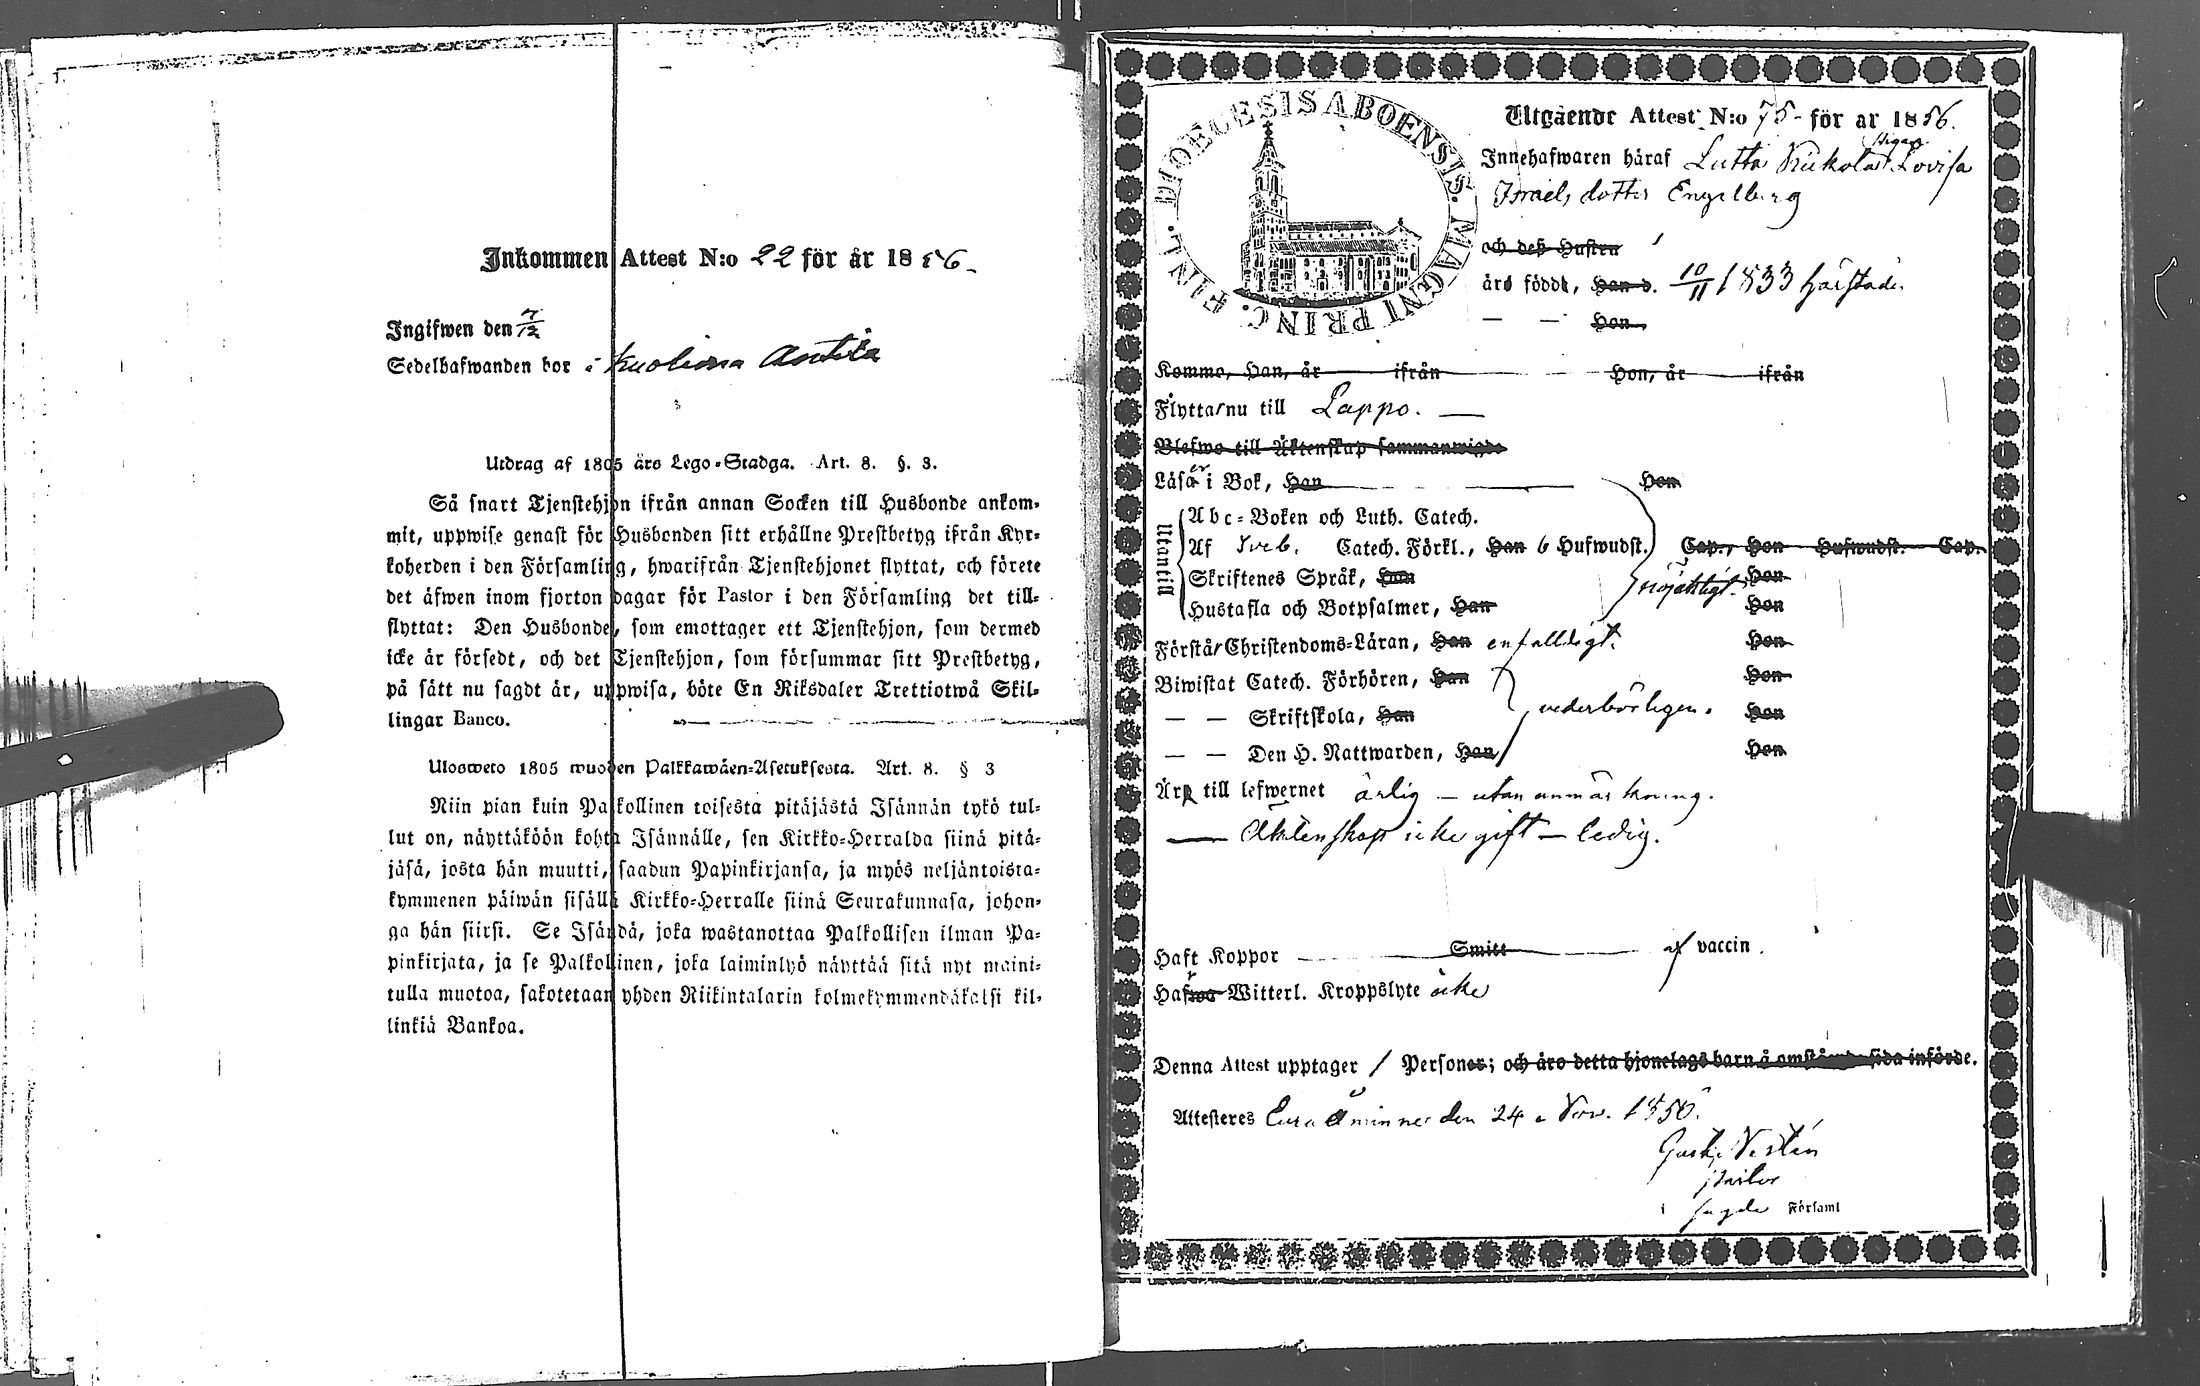 Inkommen Attest N:o 22 för år 1856.
Ingifwen den 7/12
Sedelhafwanden bor i Kuolima Antila
Utdrag af 1805 års Lego-Stadga. Art. 8. §. 3.
Så snart Tjenstehjon ifrån annan Socken till Husbonde ankom-
mit, uppwise genast för Husbonden sitt erhållne Prestbetyg ifrån Kyr-
koherden i den Församling, hwarifrån Tjenstehjonet flyttat, och förete
det äfwen inom fjorton dagar för Pastor i den Församling det till-
flyttat: Den Husbonde, som emottager ett Tjenstehjon, som dermed
icke är försedt, och det Tjenstehjon, som försummar sitt Prestbetyg,
på sätt nu sagdt är, uppwisa, böte En Riksdaler Trettiotwå Skil-
lingar Banco.
Ulosweto 1805 wuoden Palkkawäen-Asetuksesta. Art. 8. § 3
Niin pian kuin Palkollinen toisesta pitäjästä Isännän tykö tul-
lut on, näyttäköön kohta Isännälle, sen Kirkko-Herralda siinä pitä-
jäsä, josta hän muutti, saadun Papinkirjansa, ja myös neljäntoista-
kymmenen päiwän sisällä Kirkko-Herralle siinä Seurakunnasa, johon-
ga hän siirsi. Se Isändä, joka wastanottaa Palkollisen ilman Pa-
pinkirjata, ja se Palkollinen, joka laiminlyö näyttää sitä nyt maini-
tulla muotoa, sakotetaan yhden Riikintalarin kolmekymmendäkaksi kil-
linkiä Bankoa.
DIOECESIS ABOENSIS. MAGNI PRINC. FINL.
Utgående Attest N:o 75 för år 1856.
Pigan
Innehafwaren häraf Lutta Kukola Lovisa
Israels dotter Engelberg
och deß Hustru
äro född, Han d. 10/11 1833 härstädes
— — Hon
Komme, Han, år ifrån Hon, år ifrån
Flytta nu till Lappo. —
Blefwo till Äktenskap sammanwigde
Läser i Bok, Han Hon
Utantill
Abc-Boken och Luth. Catech.
Af Sveb. Catech. Förkl., Han 6 Hufwudst. Cap., Hon Hufwudst. Cap.
Skriftenes Språk, Han nöjaktigt. Hon
Hustafla och Botpsalmer, Han Hon
Förstår Christendoms-Läran, Han enfalldigt. Hon
Biwistat Catech. Förhören, Han Hon
— — Skriftskola, Han vederbörligen. Hon
— — Den H. Nattwarden, Han Hon
Är till lefwernet ärlig — utan anmärkning.
— Äktenskap icke gift — ledig.
Haft Koppor Smitt af vaccin.
Hafwa Witterl. Kroppslyte icke
Denna Attest upptager 1 Personer; och äro detta hjonelags barn å omstående sida införde.
Attesteres Eura Åminne den 24 Nov. 1856.
Gust. Vestén
pastor
i sagde Församl